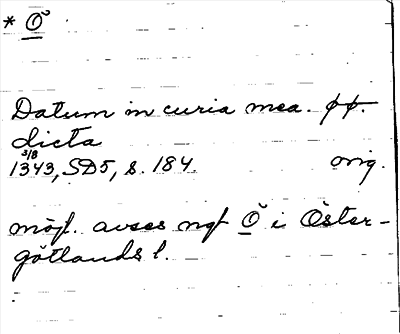 * Ö
Datum in curia mea. ɸɸ.
dicta
3/8
1343, SD5, s. 184. orig.
möjl. avses ngt Ö i Öster-
götlands l.